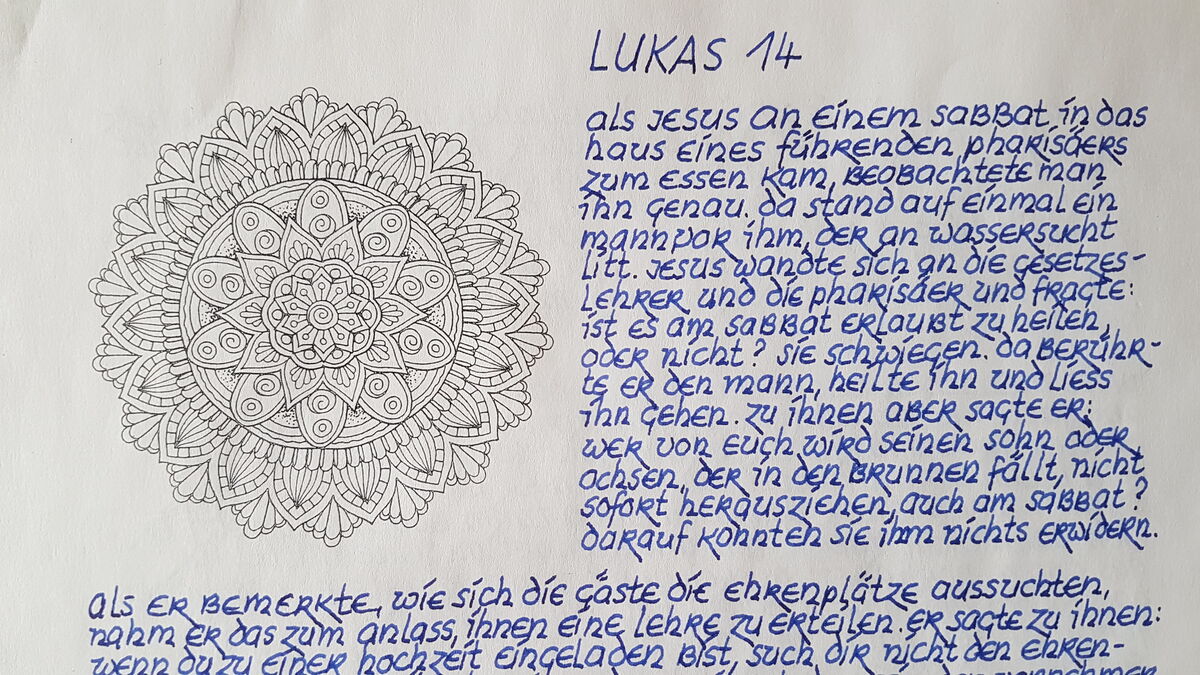 LUKAS 14
als JESUS an EINEM SABBAT in das
haus EINES führenden pharisäers
zum ESSEN kam, BEOBACHTETE man
ihn genau. da stand auf EINMAL EIN
mann vor ihm, der an wassersucht
litt. JESUS wandte sich an die GESETZES-
LEHRER und die pharisäer und fragte:
ist es am SABBAT ERLAUBT zu heilen,
oder nicht? sie schwiegen. da BERÜHR-
te er den mann, heilte ihn und liess
ihn gehen. zu ihnen ABER sagte er:
wer von euch wird seinen sohn oder
ochsen, der in den BRUNNEN fällt, nicht
sofort herausziehen, auch am SABBAT?
darauf konnten sie ihm nichts erwidern.
als er BEMERKTE, wie sich die gäste die ehrenplätze aussuchten,
nahm er das zum anlass, ihnen eine lehre zu erteilen. er sagte zu ihnen:
wenn du zu einer hochzeit eingeladen bist, such dir nicht den ehren-